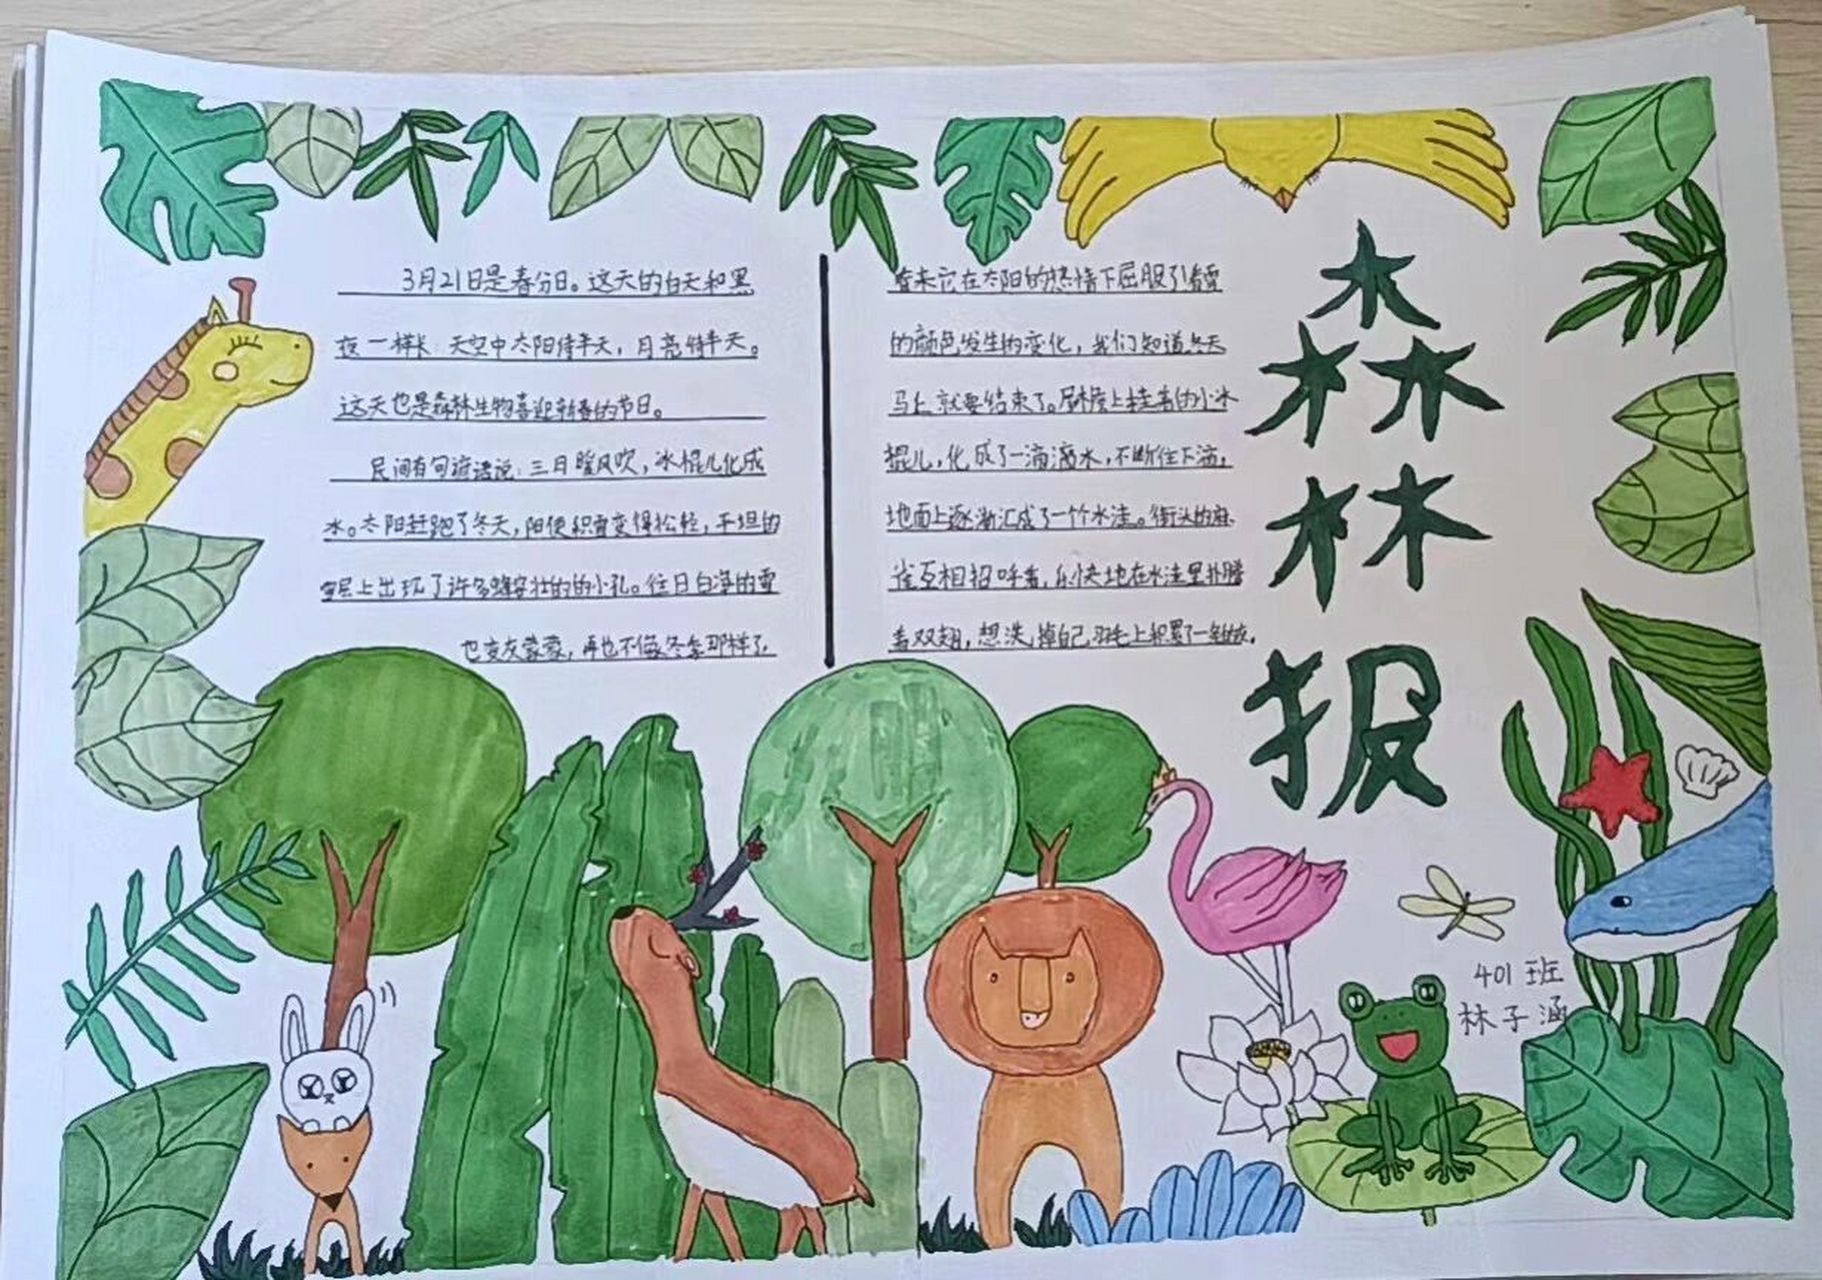 3月21日是春分日。这天的白天和黑
夜一样长:天空中太阳待半天，月亮待半天。
这天也是森林生物喜迎新春的节日。
民间有句谚语说:三月暖风吹，冰棍儿化成
水。太阳赶跑了冬天，阳使积雪变得松轻，平坦的
雪层上出现了许多蜂窝壮的的小孔。往日白净的雪
也变灰蒙蒙，再也不像冬季那样了，
看来它在太阳的热情下屈服了!看雪
的颜色发生的变化，我们知道冬天
马上就要结束了。屋檐上挂着的小冰
棍儿，化成了一滴滴水，不断往下滴，
地面上逐渐汇成了一个水洼。街头的麻
雀互相招呼着，乐快地在水洼里扑腾
着双翅，想洗掉自己羽毛上积累了一年的
森林报
401班
林子涵